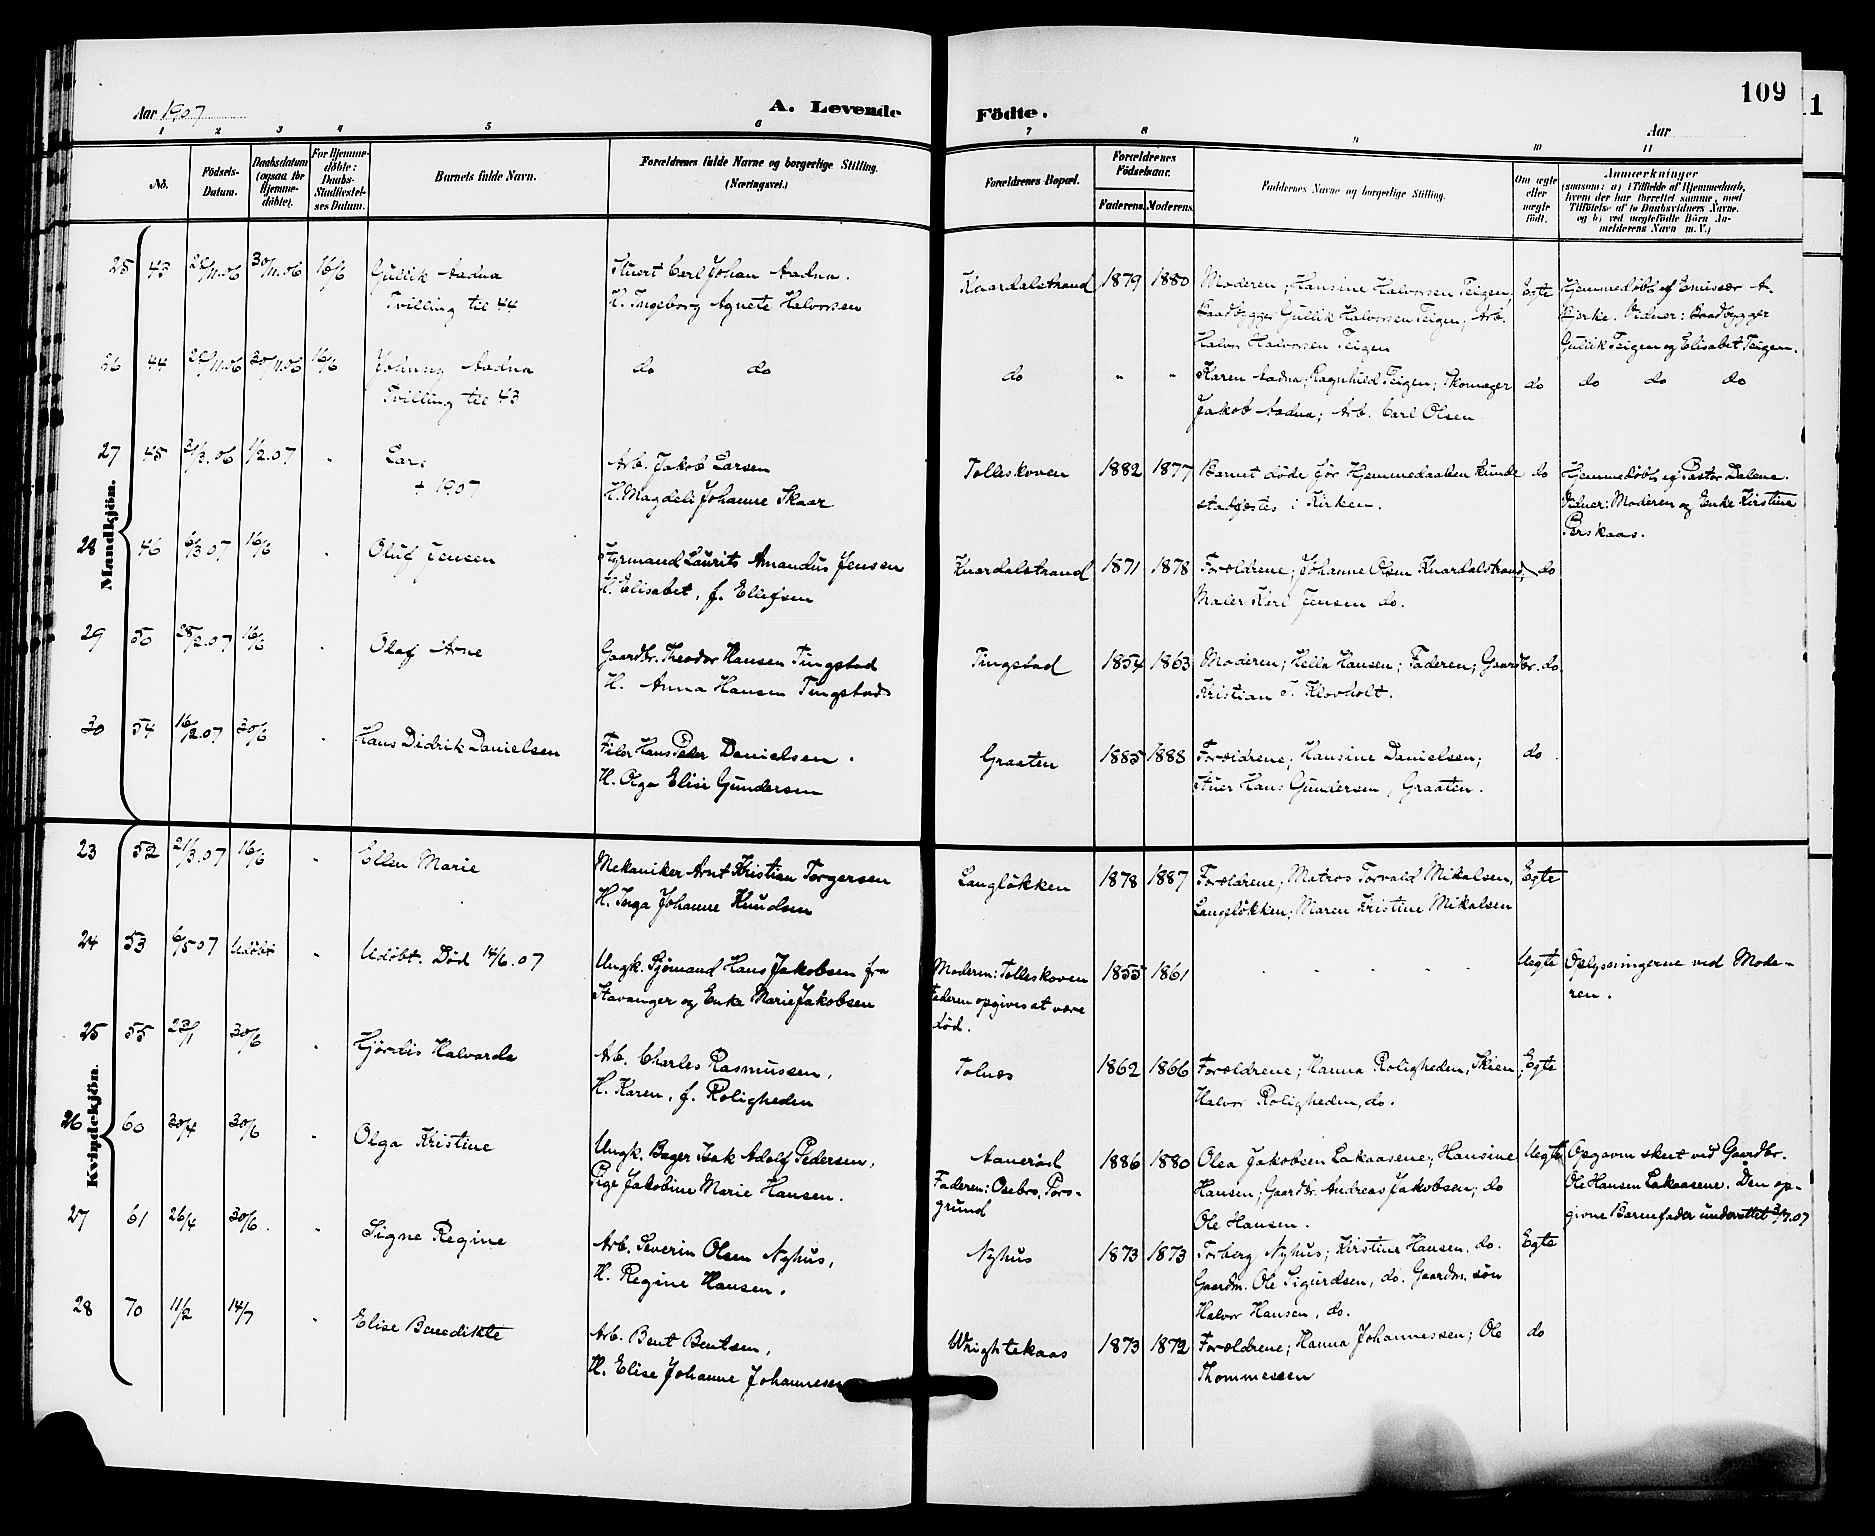 109
Aar 1907
A. Levende
Födte.
Aar
1 2 3 4 5 6 7 8 9 10 11
No.
Födsels-
Datum.
Daabsdatum
(ogsaa for
Hjemme-
döbte).
For Hjemme-
döbte:
Daabs-
Stadfæstel-
ses Datum.
Barnets fulde Navn.
Forældrenes fulde Navne og borgerlige Stilling.
(Næringsvei.)
Forældrenes Bopæl.
Forældrenes
Födselsaar.
Faderens. Moderens.
Faddernes Navne og borgerlige Stilling.
Om ægte
eller
uægte
födt.
Anmærkninger
(saasom: a) i Tilfælde af Hjemmedaab,
hvem der har forrettet samme, med
Tilföielse af to Daabsvidners Navne.
og b) ved uægtefödte Börn An-
melderens Navn m. V.)
Mandkjön.
25 43 /11.06 30/11.06 16/6 Gullik Aadna
Tvilling til 44
Stuert Carl Johan Aadna.
H. Ingeborg Agnete Halvorsen
Knardalstrand 1879 1880
Moderen; Hansine Halvorsen Teigen;
Baadbygger Gullik Halvorsen Teigen; Arb.
Halvor Halvorsen Teigen
Egte
Hjemmedøbt af Emissær A.
Birke. Vidner: Baadbygger
Gullik Teigen og Elisabet Teigen.
26 44 /11.06 30/11.06 16/6 Johnny Aadna
Tvilling til 43
do do
do " "
Karen Aadna; Ragnhild Teigen; Skomager
Jakob Aadna; Arb. Carl Olsen
do
do do do
27 45 3/3.06 1/2.07 Lars
+ 1907
Arb. Jakob Larsen
H. Magdeli Johanne Skaar
Tolleskoven 1882 1877
Barnet døde før Hjemmedaaben kunde
stadfæstes i Kirken.
do
Hjemmedøbt af Pastor Dalene.
Vidner: Moderen og Enke Kirstine
Perskaas.
28 46 6/3.07 16/6 Oluf Jensen
Styrmand Laurits Amandus Jensen
H. Elisabet, f. Ellefsen
Knardalstrand 1871 1878
Forældrene; Johanne Olsen Knardalstrand;
Maler Karl Jensen do.
do
29 50 28/2.07 16/6 Olaf Arne
Gaardbr. Theodor Hansen Tingstad
H. Anna Hansen Tingstad
Tingstad 1854 1863
Moderen; Hella Hansen; Faderen; Gaardbr.
Kristian T. Klovholt.
do.
30 54 16/2.07 30/6 Hans Didrik Danielsen
Filer Hans Peder Danielsen.
H. Olga Elise Gundersen
Graaten 1885 1888
Forældrene; Hansine Danielsen;
Stuer Hans Gundersen, Graaten.
do
Kvindekjön.
23 52 21/3.07 16/6 Ellen Marie
Mekaniker Arnt Kristian Torgersen
H. Inga Johanne Knudsen
Langløkken 1878 1887
Forældrene; Matros Torvald Mikalsen,
Langeløkken; Maren Kristine Mikalsen
Egte
24 53 6/5 07 Udøbt Udøbt. Død 14/6.07
Ungk. Sjømand Hans Jakobsen fra
Stavanger og Enke Marie Jakobsen
Moderen: Tolleskoven
Faderen opgives at være
død.
1855 1861
Uegte
Oplysningerne ved Mode-
ren.
25 55 23/1 30/6 Hjørdis Halvarda
Arb. Charles Rasmussen,
H. Karen, f. Roligheden
Tolnæs 1862 1866
Forældrene; Hanna Roligheden, Skien;
Halvor Roligheden, do.
Egte
26 60 30/4 30/6 Olga Kristine
Ungk. Bager Isak Adolf Pedersen,
Pige Jakobine Marie Hansen.
Aanerød
Faderen: Osebro, Pors-
grund
1886 1880
Olea Jakobsen Lakaasene; Hansine
Hansen; Gaardbr. Andreas Jakobsen; do
Ole Hansen.
Uegte
Opgaven skeet ved Gaardbr.
Ole Hansen Lakaasene. Den op-
givne Barnefader underrettet 3/7.07
27 61 26/4 30/6. Signe Regine
Arb. Severin Olsen Nyhus,
H. Regine Hansen.
Nyhus 1873 1873
Torberg Nyhus; Kirstine Hansen, do.
Gaardm. Ole Sigurdsen, do. Gaardm. søn
Halvor Hansen, do.
Egte
28 70 11/2 14/7 Elise Benedikte
Arb. Bent Bentsen,
H. Elise Johanne Johannesen
Wrightekaas 1873 1872
Forældrene; Hanna Johannessen; Ole
Thommessen
do